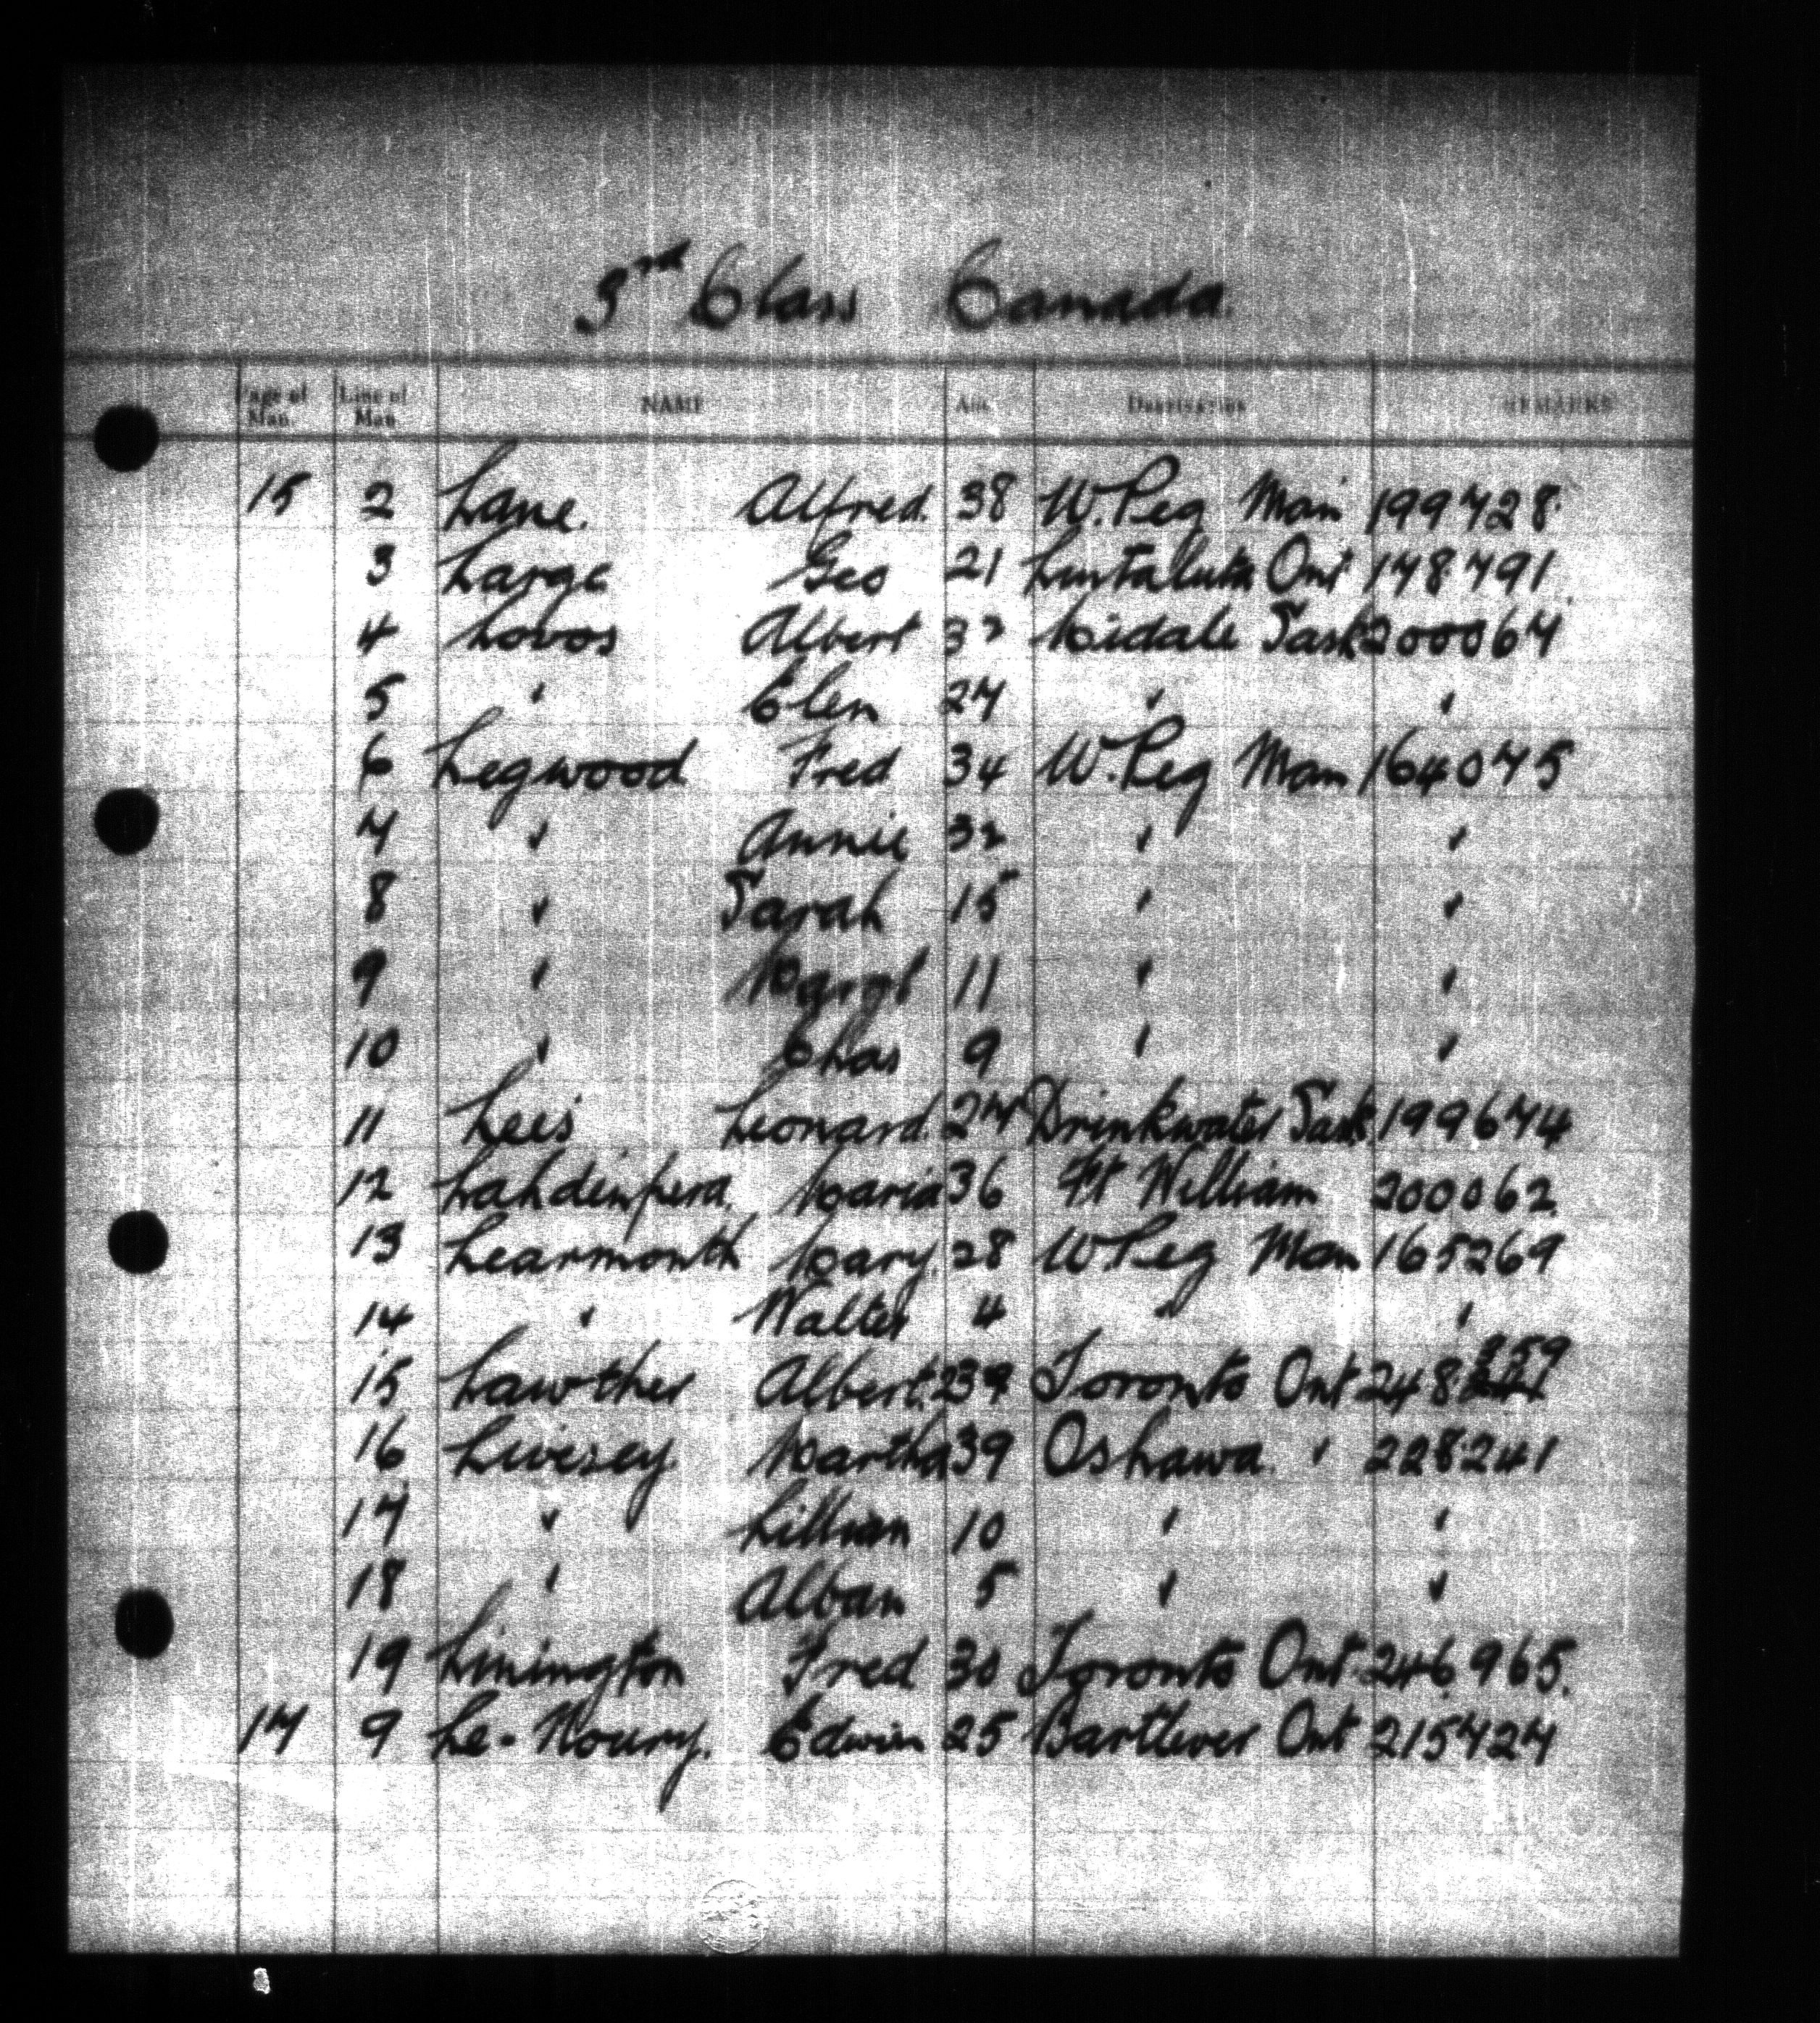 3rd Class Canada.
Page of Man. Line of Man NAME Age Destination REMARKS
15 2 Lane. Alfred. 38 W.Peg Man 199728
3 Large Geo 21 Ont 178791
4 Lovos Albert 32 Midale Sask 200067
5 " Elen 27 " "
6 Legwood Fred 34 W.Peg Man 164075
7 " Annie 32 " "
8 " Sarah 15 " "
9 " Margt 11 " "
10 " Chas 9 " "
11 Lees Leonard. 27 Drinkwater Sask 199674
12 Lahdinpera. Maria 36 Ft William 200062
13 Learmonth Mary. 28 W.Peg Man 165269
14 " Walter 4 " "
15 Lawther Albert. 39 Toronto Ont 248
16 Livesey Martha 39 Oshawa. " 228241
17 " Lillian 10 " "
18 " Alban 5 " "
19 Linington Fred 30 Toronto Ont 246965.
17 9 Le-Noury. Edwin 25 Ont 215727